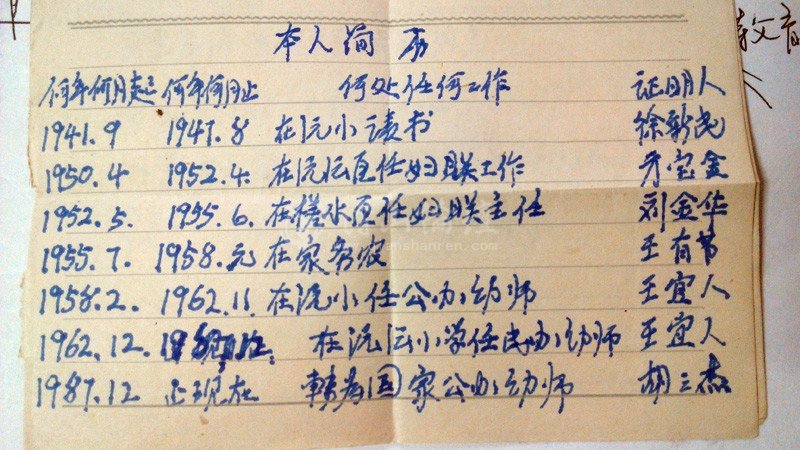 本人简历
何年何月起 何年何月止 何处任何工作 证明人
1941.9 1947.8 在沅小读书 徐新民
1950.4 1952.4. 在沅坛区任妇联工作 宝金
1952.5. 1955.6. 在槎水区任妇联主任 刘金华
1955.7. 1958.元 在家务农 王有节
1958.2. 1962.11. 在沅小任公办幼师 王宜人
1962.12. 在沅坛小学任民办幼师 王宜人
1987.12 止现在 转为国家公办幼师 胡三杰
教育